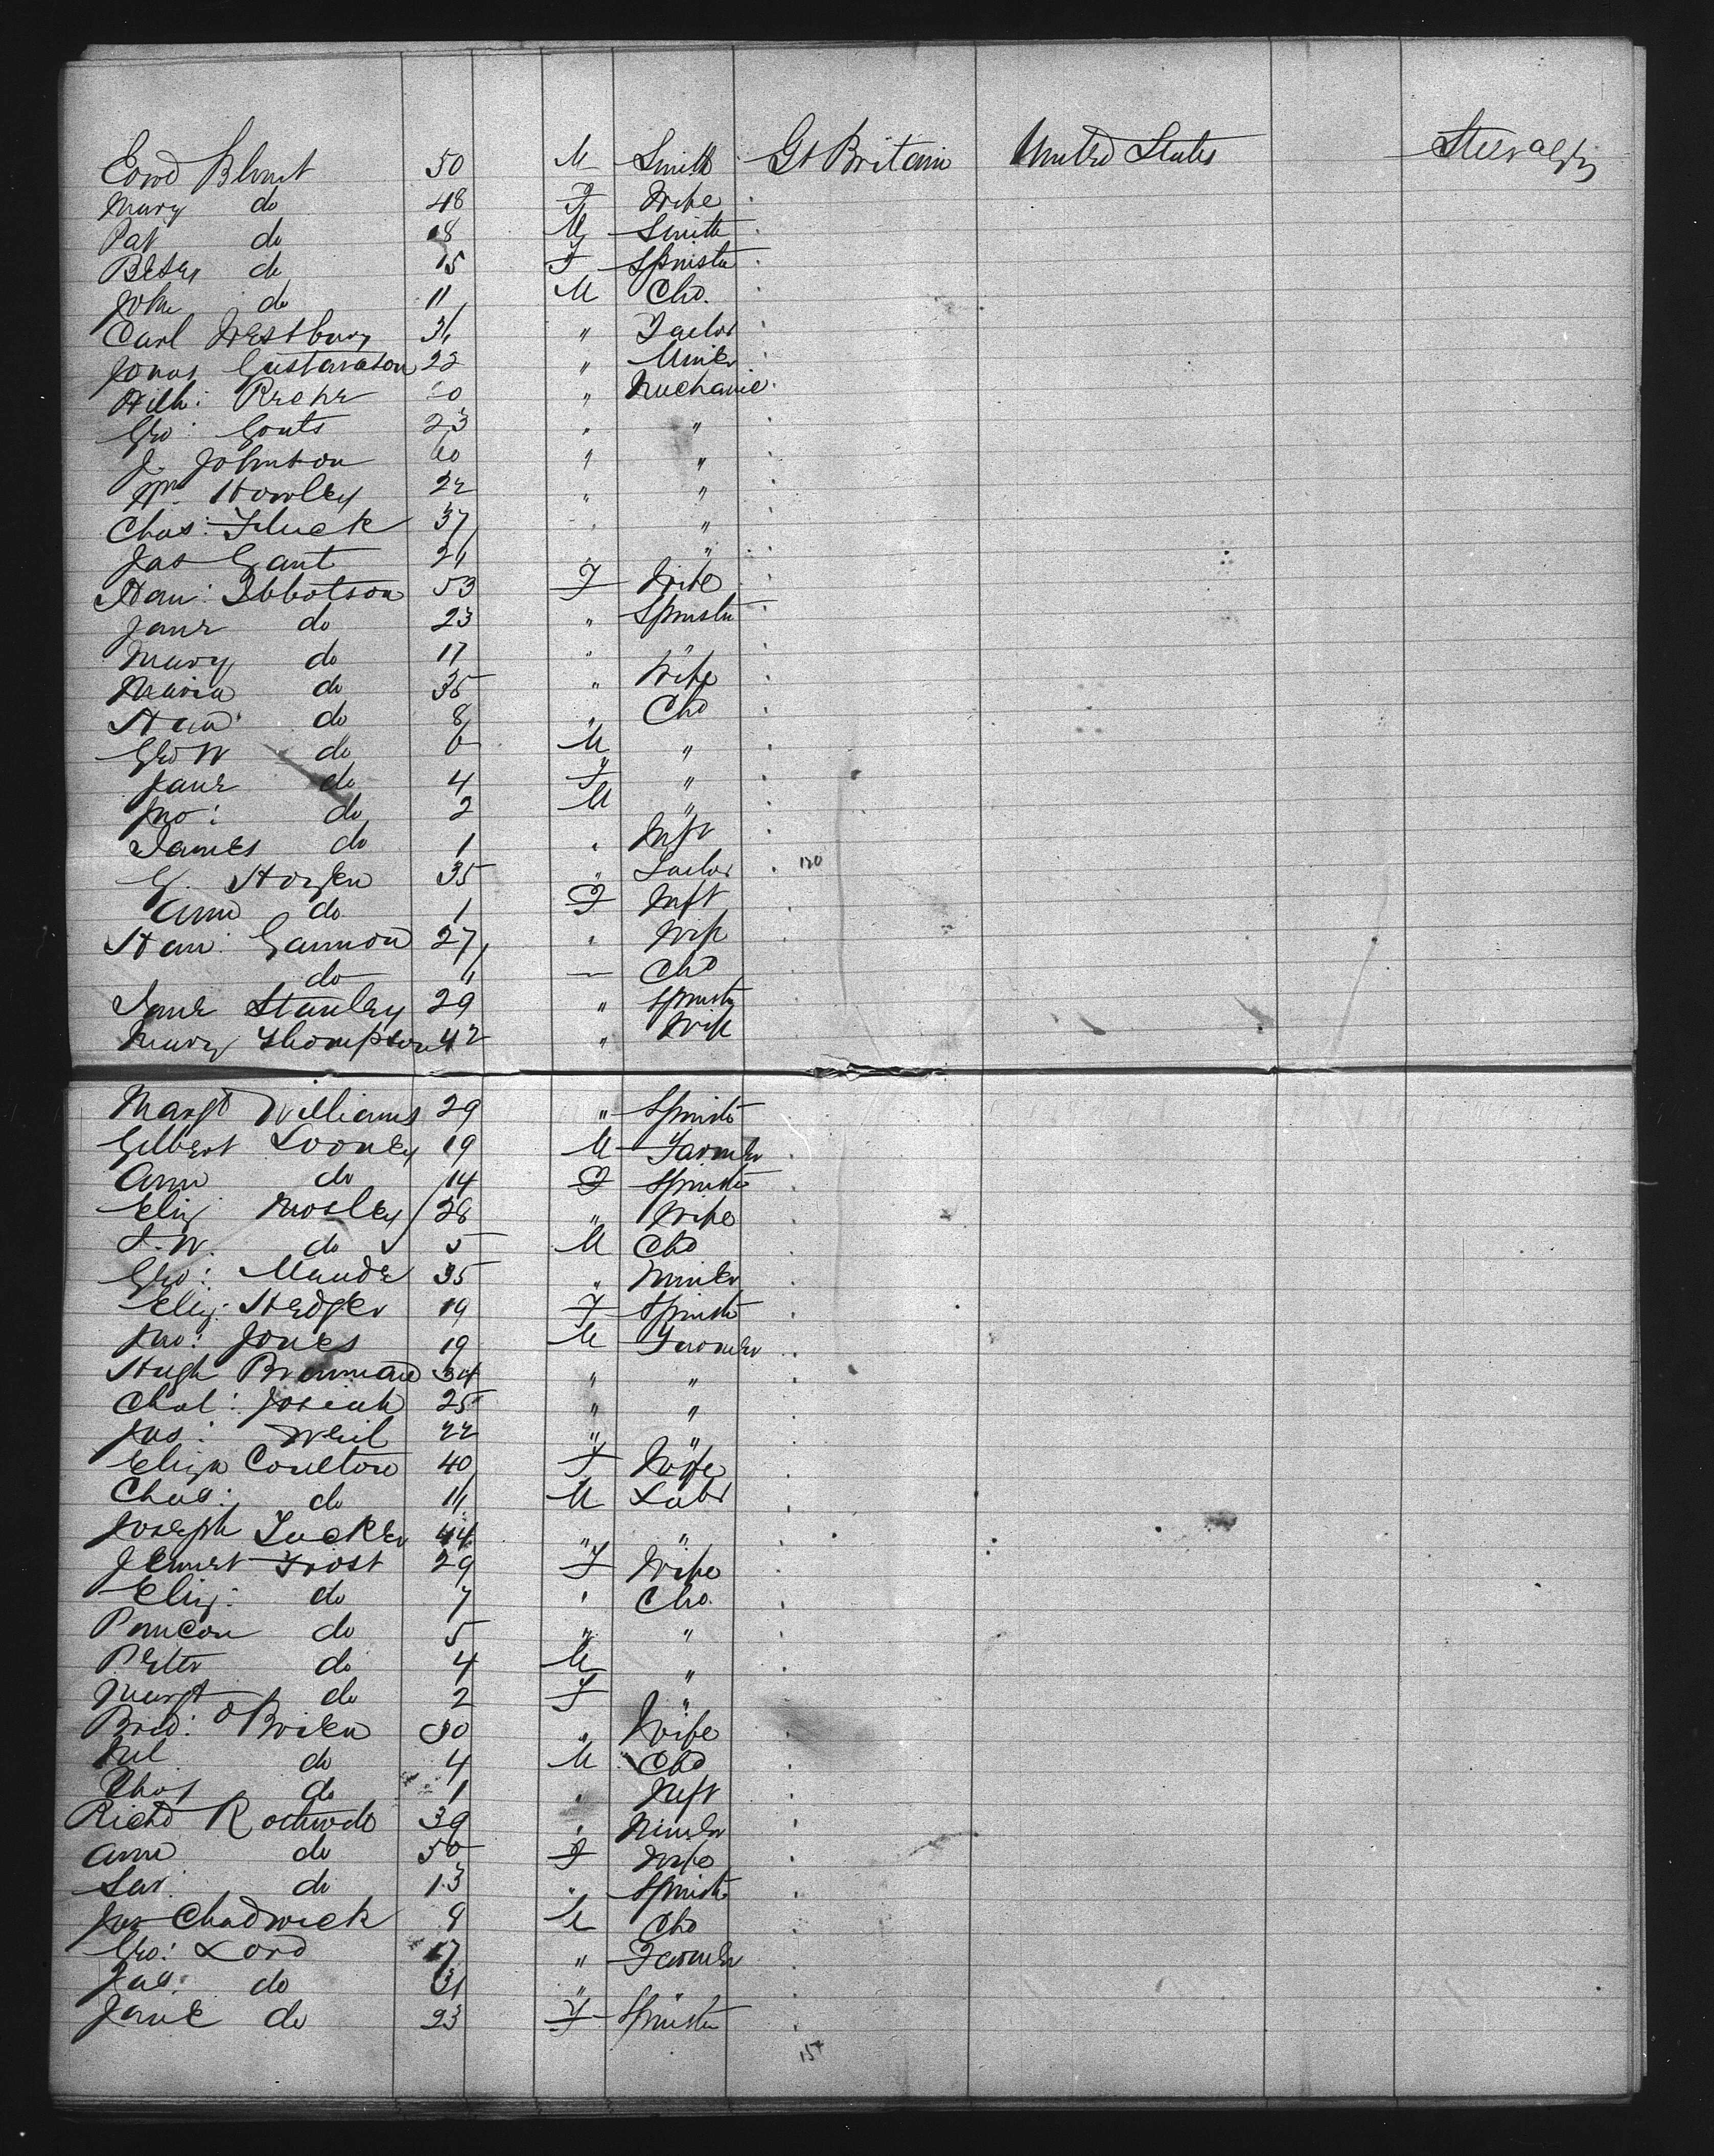 Edwd Blunt 50 M Smith Gt Britain United States Steerage
Mary do 48 F Wife
Pat do 18 M Smith
Betsy do 15 F Spinster
John do 11 M Chd.
Carl Westburg 31 " Tailor
Jonas Gustavason 22 " Miner
Wilh: 20 " Mechanic
Geo: Gouts 23 " "
J. Johnson 60 " "
Wm Howley 22 " "
Chas: Fluck 37 "
Jas Gant 21 "
Han: Ibbotson 53 F Wife
Jane do 23 " Spinster
Mary do 17 " "
Maria do 35 " Wife
Han: do 8 " Chd
Geo W do 6 M "
Jane do 4 F "
Jno: do 2 M "
James do 1 " Inft
G. Horsfen 35 " Tailor 120
Ann do 1 F Inft
Han: Gannon 27 " Wife
do 11 Chd
Jane Stanley 29 " Spinstr
Mary Thompson 42 " Wife
Margt Williams 29 " Spinstr
Gilbert Looney 19 M Farmer
Ann do 14 F Spinstr
Eliz Mosley 28 " Wife
S. W. do 5 M Chd
Geo: Maude 35 " Miner
Eliz: Hedger 19 F Spinstr
Jno: Jones 19 M Farmer
Hugh Brennand 34 " "
Chat: Josiah 25 " "
Jas: Weil 22 " "
Eliza Coulton 40 F Wife
Chas: do 11 M Labr
Joseph Tucker 44 " "
Jennet Frost 29 F Wife
Eliz: do 7 " Chd.
do 5 " "
Peter do 4 M "
Margt do 2 F "
Brid: O'Brien 30 " Wife
do 4 M Chd
Thos do 1 " Inft
Richd 39 " Miner
Ann do 50 F Wife
Sar. do 13 " Spinstr
Jas Chadwick 9 M Chd
Geo: Lord 17 " Farmer
Jas. do 31 "
Jane do 23 F Spinster